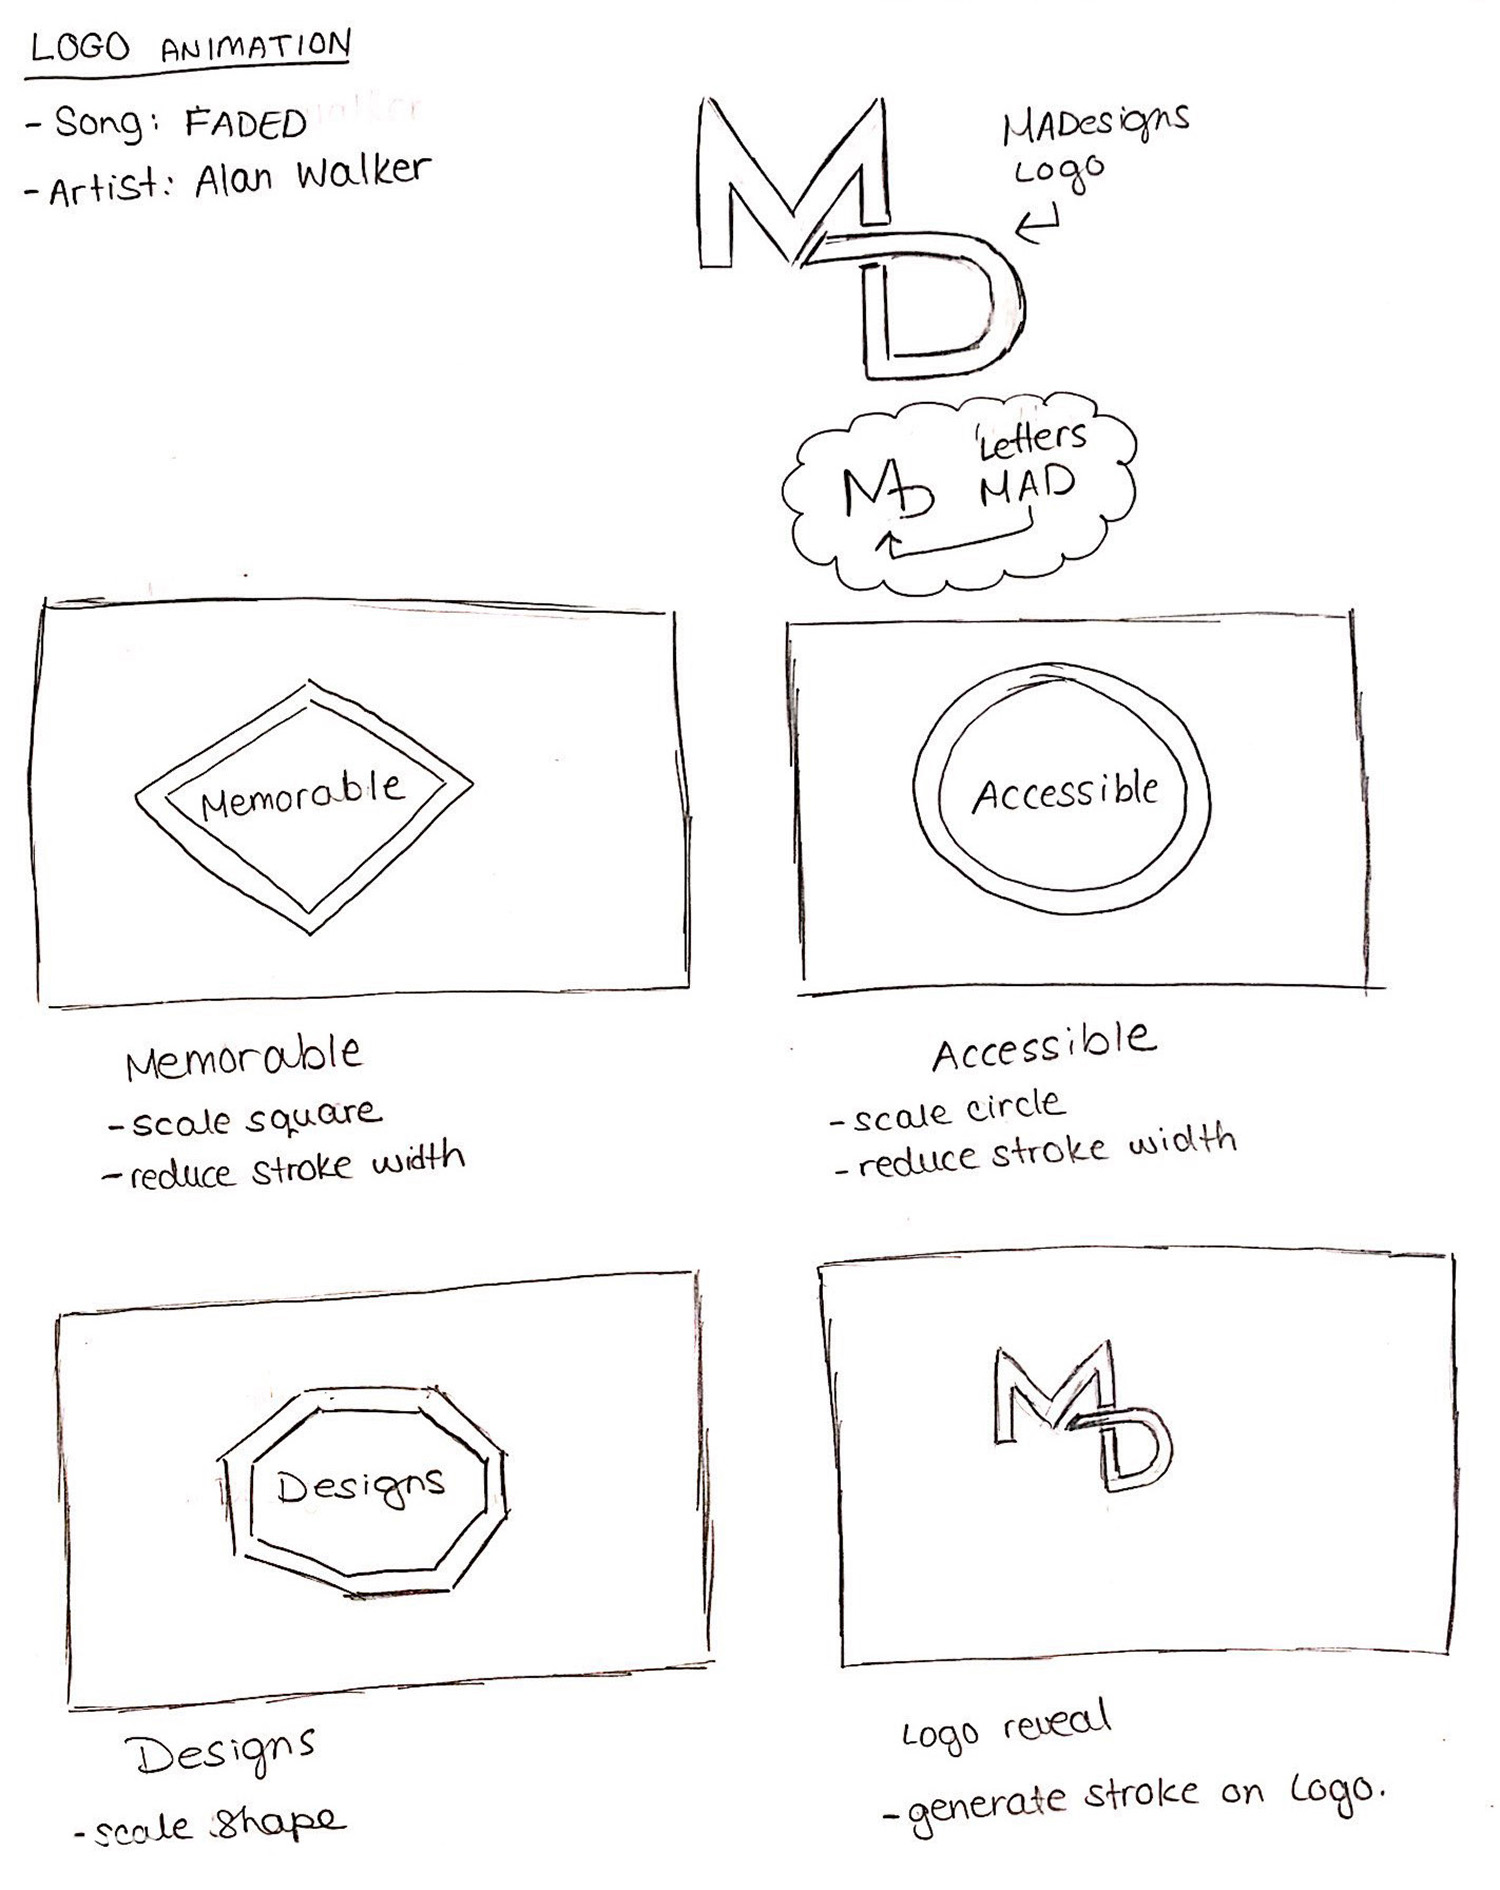 LOGO ANIMATION
- Song: FADED
- Artist: Alan Walker
MD
MADesigns
Logo
MD
Letters
MAD
Memorable
Accessible
Memorable
- scale square
- reduce stroke width
Accessible
- scale circle
- reduce stroke width
Designs
MD
Designs
- scale shape
Logo reveal
- generate stroke on Logo.